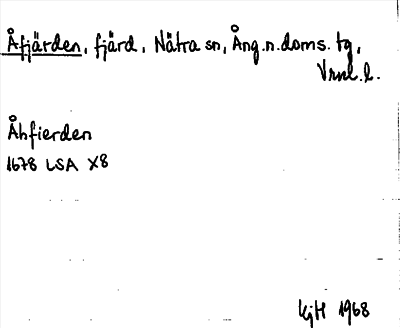 Åfjärden, fjärd, Nätra sn, Ång.n.doms.tg,
Vrnl.l.
Åhfierden
1678 LSA X8
KjH 1968